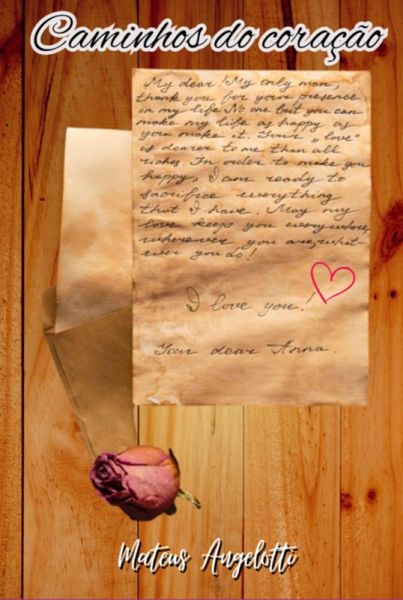 Caminhos do coração
My dear! My only man,
thank you for your presence
in my life. No one but you can
make my life as happy as
you make it. Your „love"
is dearer to me than all
riches. In order to make you
happy, I am ready to
sacrifice everything
that I have. May my
love keep you everywhere,
wherever you are, what-
ever you do!
I love you!
Your dear Anna.
Mateus Angelotti